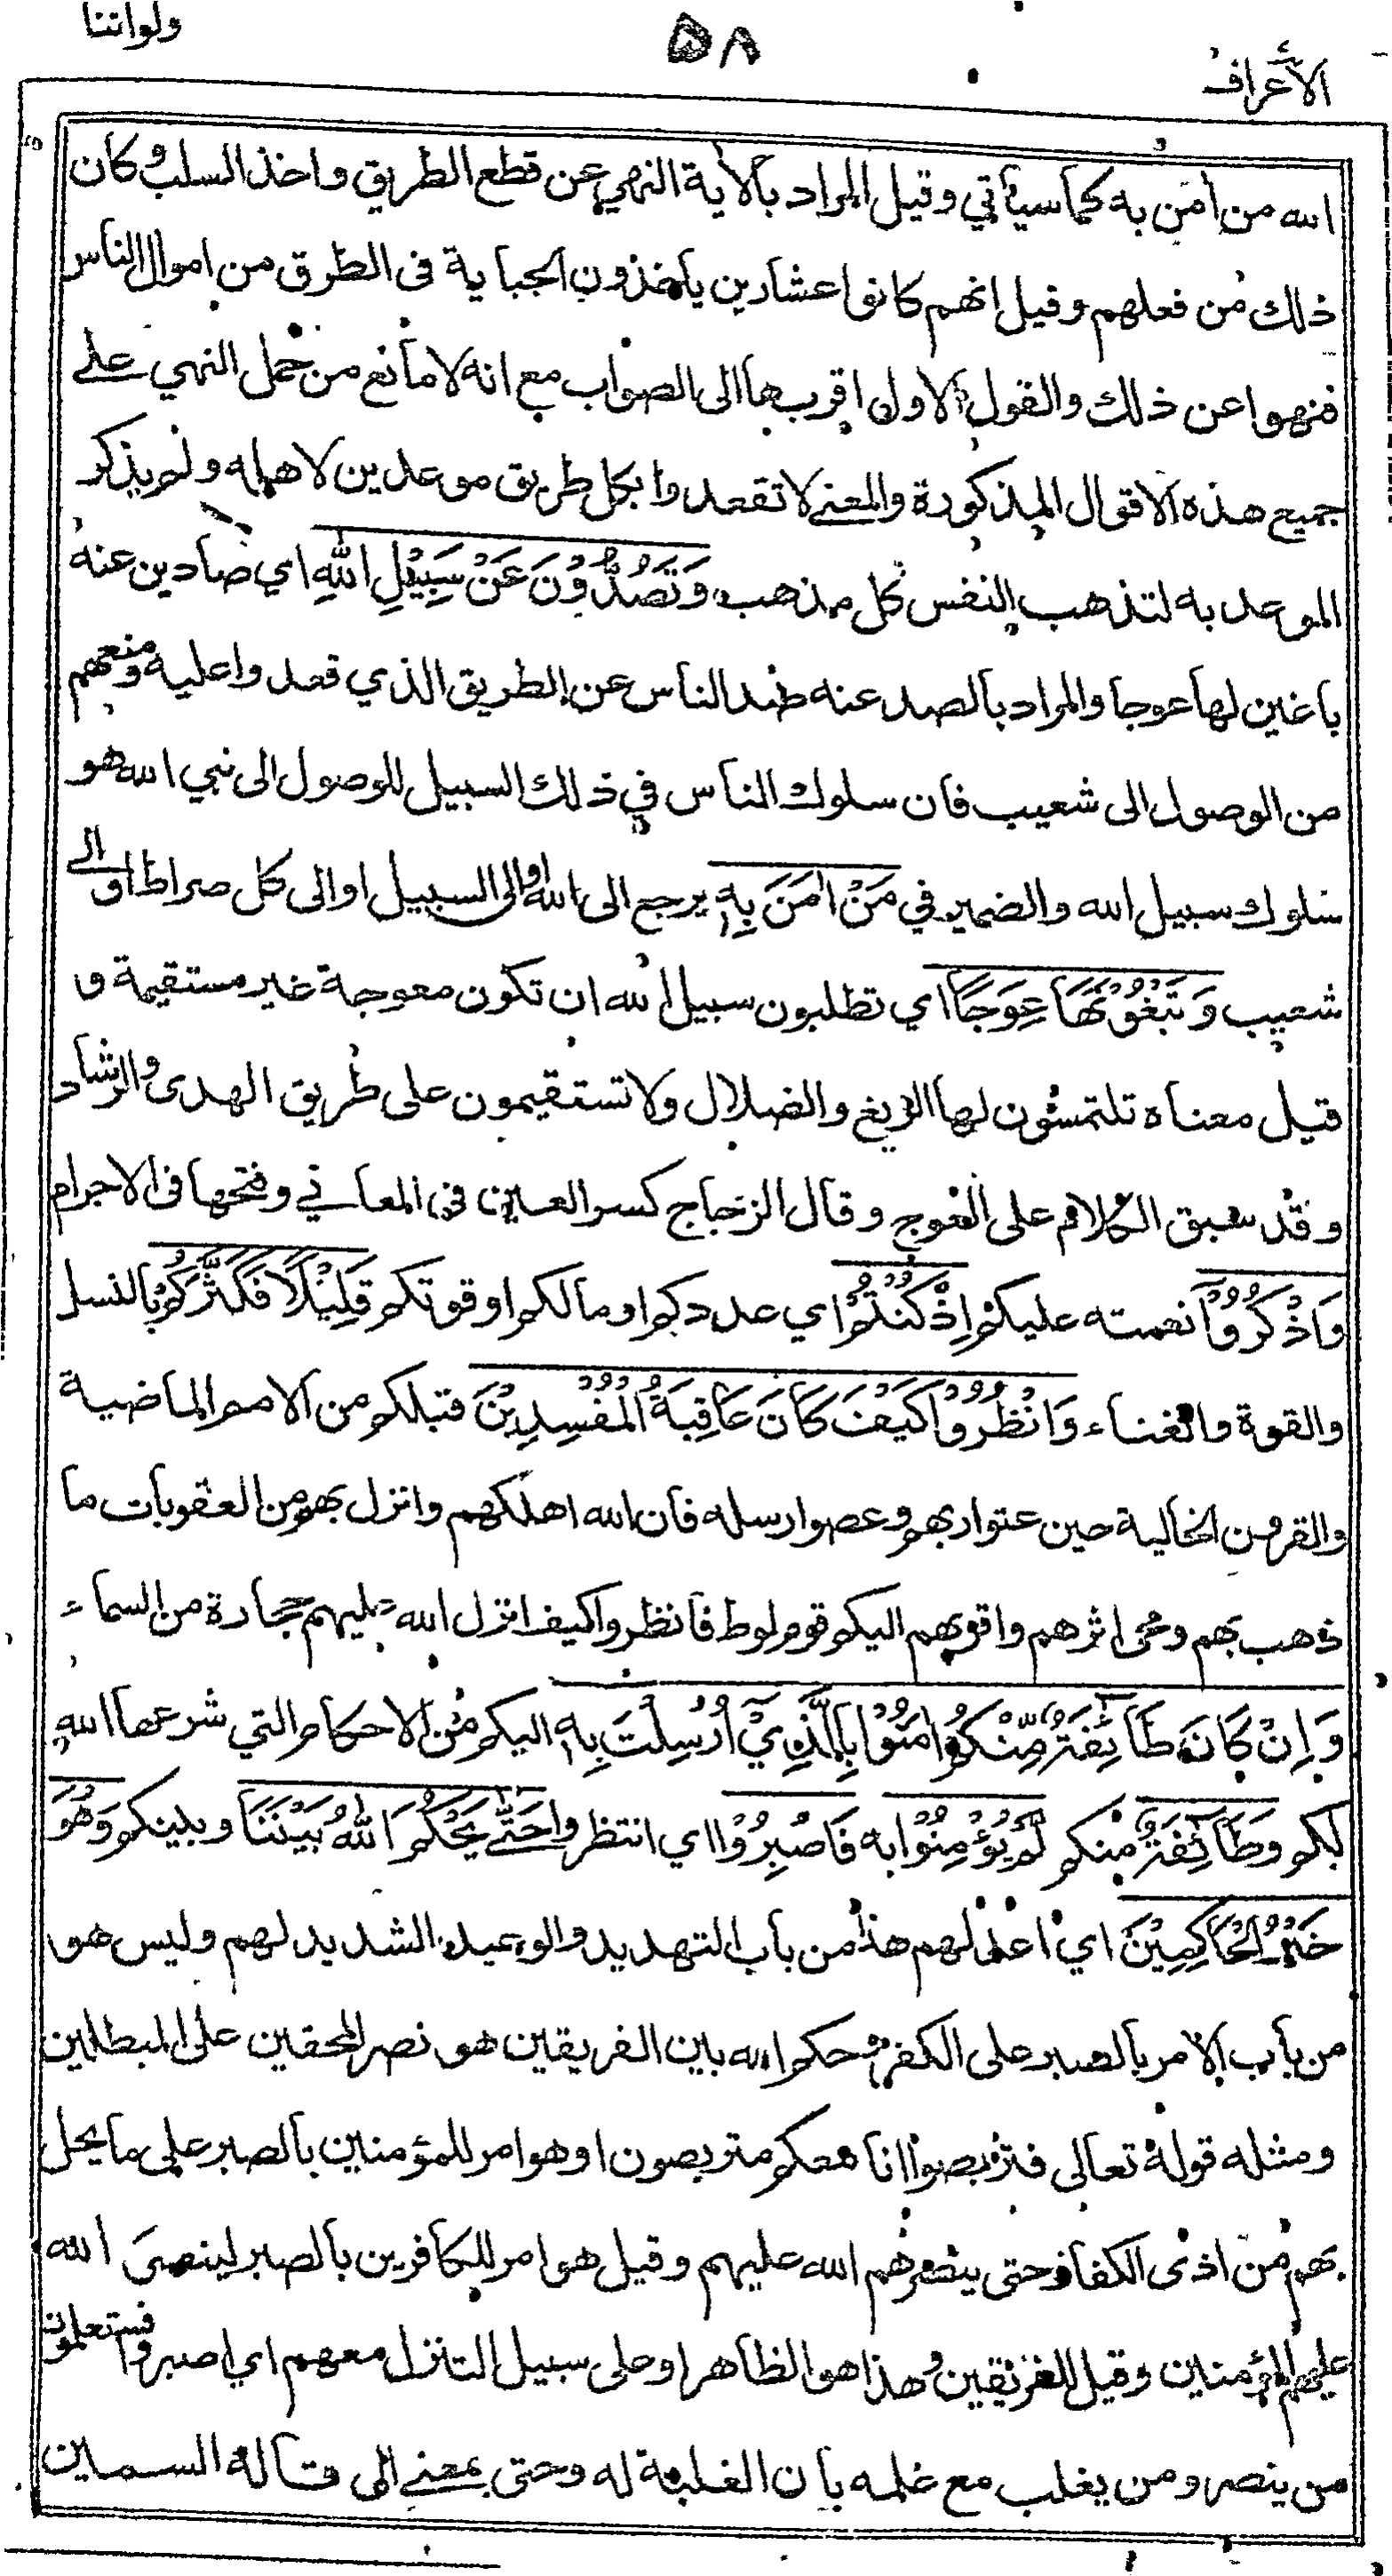 ولواننا
٥٨
الأعراف
الله من امن به كما سيأتي وقيل المراد بالاية النهي عن قطع الطريق واخذ السلب وكان
ذلك من فعلهم وقيل انهم كانوا عشارين يأخذون الجباية فى الطرق من اموال الناس
فنهوا عن ذلك والقول الاول اقربها الى الصواب مع انه لا مانع من حمل النهي على
جميع هذه الاقوال المذكورة والمعنى لا تقعدوا بكل طريق موعدين لاهله ولم يذكر
الموعد به لتذهب النفس كل مذهب وَتَصُدُّوْنَ عَنْ سَبِيْلِ اللهِ اي صادين عنه
باغين لها عوجا والمراد بالصد عنه صد الناس عن الطريق الذي قعدوا عليه ومنعهم
من الوصول الى شعيب فان سلوك الناس في ذلك السبيل للوصول الى نبي الله هو
سلوك سبيل الله والضمير في مَنْ اٰمَنَ بِهٖ يرجع الى الله او الى السبيل او الى كل صراط او الى
شعيب وَتَبْغُوْنَهَا عِوَجًا اي تطلبون سبيل الله ان تكون معوجة غير مستقيمة و
قيل معناه تلتمسون لها الزيغ والضلال ولا تستقيمون على طريق الهدى والرشاد
وقد سبق الكلام على العوج وقال الزجاج كسر العين فى المعاني وفتحها فى الاجرام
وَاذْكُرُوْٓا نعمته عليكم اِذْ كُنْتُمْ اي عددكم او مالكم او قوتكم قَلِيْلًا فَكَثَّرَكُمْ بالنسل
والقوة والغناء وَانْظُرُوْا كَيْفَ كَانَ عَاقِبَةُ الْمُفْسِدِيْنَ قبلكم من الامم الماضية
والقرون الخالية حين عتوا ربهم وعصوا رسله فان الله اهلكهم وانزل بهم من العقوبات ما
ذهب بهم ومحى اثرهم واقربهم اليكم قوم لوط فانظروا كيف انزل الله عليهم حجارة من السماء
وَاِنْ كَانَ طَآئِفَةٌ مِّنْكُمْ اٰمَنُوْا بِالَّذِيْٓ اُرْسِلْتُ بِهٖ اليكم من الاحكام التي شرعها الله
لكم وطَآئِفَةٌ منكم لَمْ يُؤْمِنُوْا به فَاصْبِرُوْا اي انتظروا حَتّٰى يَحْكُمَ اللهُ بَيْنَنَا وبينكم وَهُوَ
خَيْرُ الْحَاكِمِيْنَ اي اعدلهم هذا من باب التهديد والوعيد الشديد لهم وليس هو
من باب الامر بالصبر على الكفر وحكم الله بين الفريقين هو نصر المحقين على المبطلين
ومثله قوله تعالى فتربصوا انا معكم متربصون او هو امر للمؤمنين بالصبر على ما يحل
بهم من اذى الكفار حتى ينصرهم الله عليهم وقيل هو امر للكافرين بالصبر لينصر الله
عليهم المؤمنين وقيل للفريقين وهذا هو الظاهر او على سبيل التنزل معهم اي اصبروا فستعلمون
من ينصر ومن يغلب مع علمه بان الغلبة له وحتى بمعنى الى قاله السمين